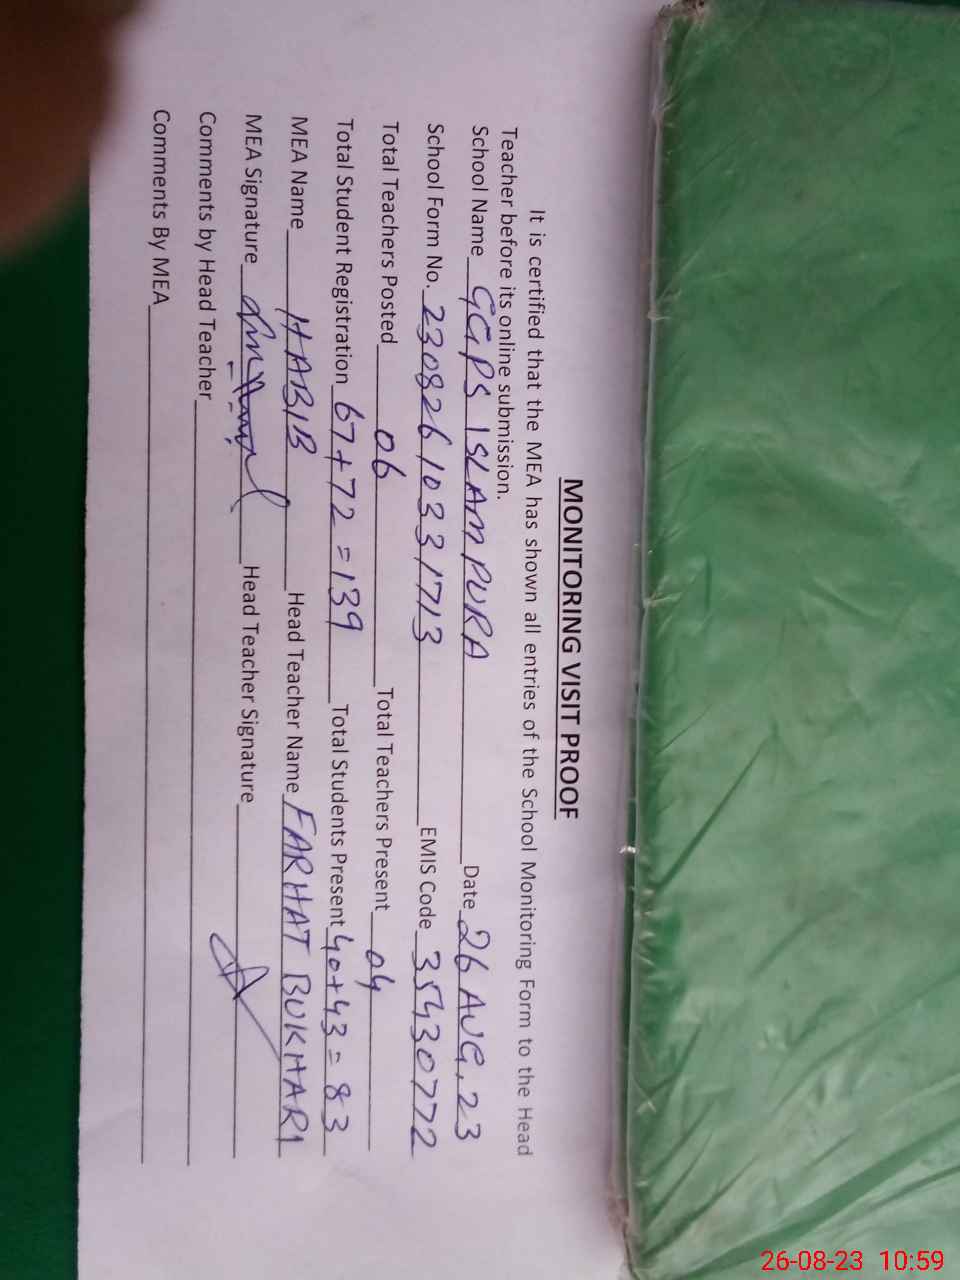 MONITORING VISIT PROOF
It is certified that the MEA has shown all entries of the School Monitoring Form to the Head
Teacher before its online submission.
School Name GGPS ISLAM PURA Date 26 AUG, 23
School Form No. 230826 1033 1713 EMIS Code 35430772
Total Teachers Posted 06 Total Teachers Present 04
Total Student Registration 67+72=139 Total Students Present 40+43=83
MEA Name HABIB Head Teacher Name FARHAT BUKHARI
MEA Signature Head Teacher Signature
Comments by Head Teacher
Comments By MEA
26-08-23 10:59